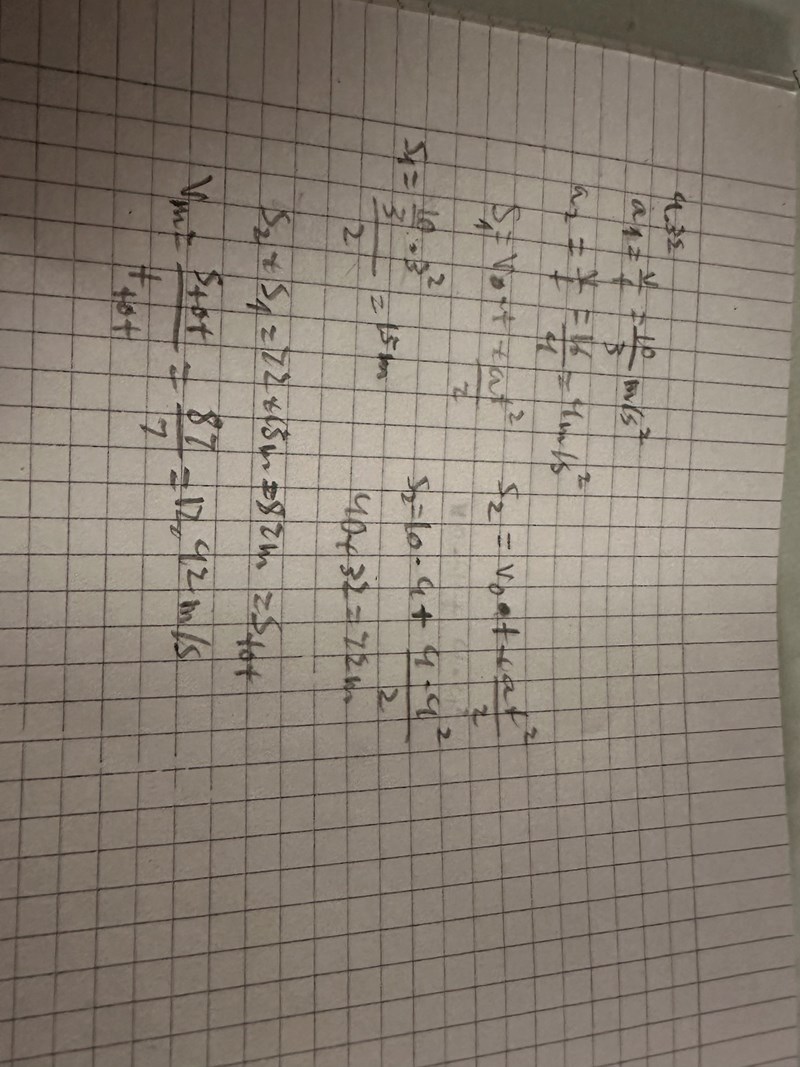 4.32
a₁ = v/t = 10/3 m/s²
a₂ = v/t = 16/4 = 4 m/s²
S₁ = v₀·t + at²/2    S₂ = v₀·t + at²/2
S₁ = (10/3 · 3²)/2 = 15 m    S₂ = 10 · 4 + (4 · 4²)/2
40 + 32 = 72 m
S₂ + S₁ = 72 + 15 m = 87 m = S tot
Vm = S tot/t tot = 87/7 = 12,42 m/s